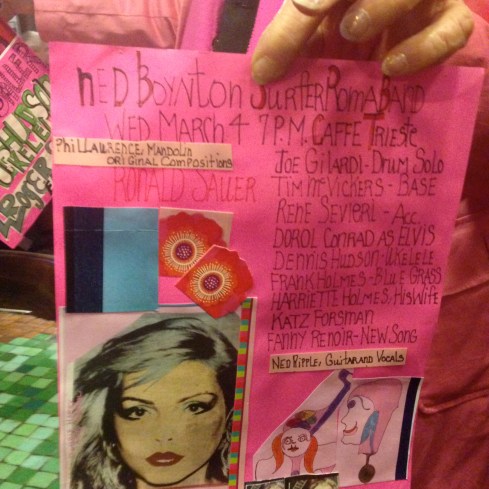 NED BOYNTON SURFER ROMA BAND
WED MARCH 4 7 P.M. CAFFE TRIESTE
PHIL LAWRENCE, MANDOLIN
ORIGINAL COMPOSITIONS
RONALD SAUER
JOE GILARDI - DRUM SOLO
TIM MCVICKERS - BASE
RENE SEVIERI - ACC.
DOROL CONRAD AS ELVIS
DENNIS HUDSON - UKELELE
FRANK HOLMES - BLUE GRASS
HARRIETTE HOLMES, HIS WIFE
KATZ FORSMAN
FANNY RENOIR - NEW SONG
NED RIPPLE, GUITAR AND VOCALS